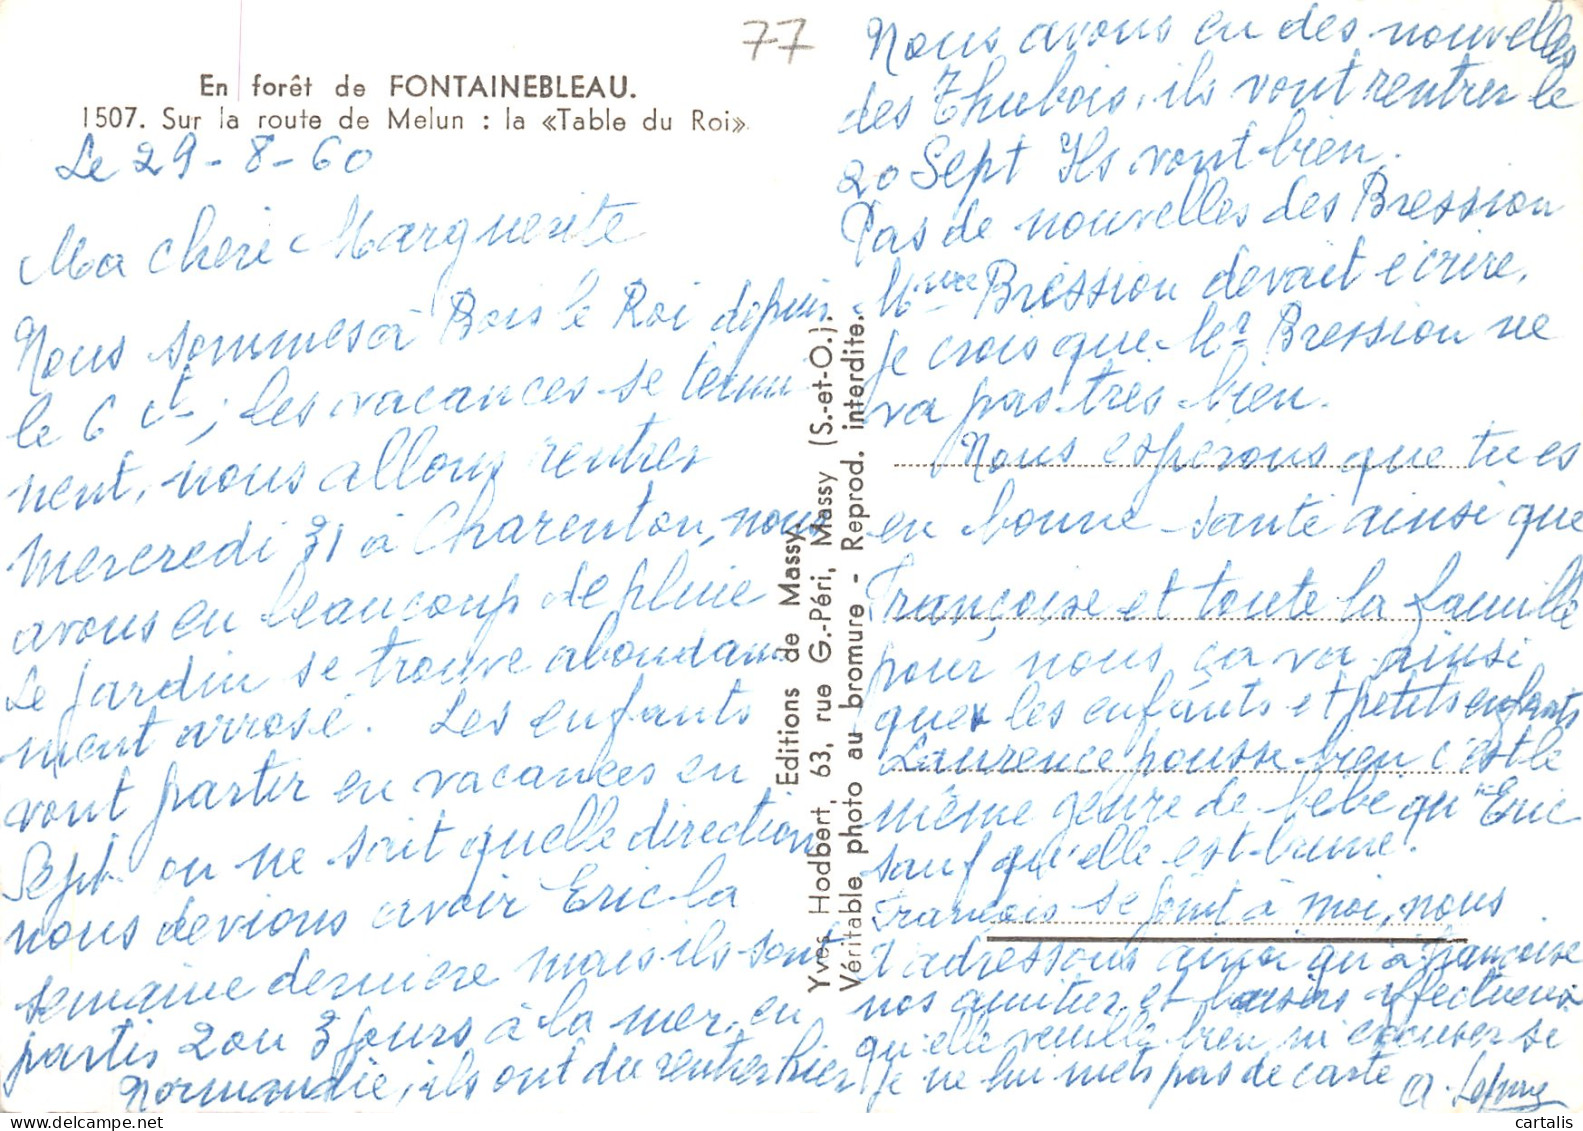 77
En forêt de FONTAINEBLEAU.
1507. Sur la route de Melun : la «Table du Roi».
Le 29-8-60
Ma cheri Marguerite
Nous sommes à Bois le Roi depuis
le 6 ct, les vacances se termi
nent, nous allons rentrer
mercredi 31 à Charenton, nous
avons eu beaucoup de pluie
Le jardin se trouve abondam
ment arrosé. Les enfants
vont partir en vacances en
Sept. on ne sait quelle direction
nous devions avoir Eric la
semaine derniere mais ils sont
partis 2 ou 3 jours à la mer, en
Normandie, ils ont du rentrer hier
Editions de Massy.
Yves Hodbert, 63, rue G.-Péri, Massy (S.-et-O.).
Véritable photo au bromure - Reprod. interdite.
Nous avons eu des nouvelles
des Thubois, ils vont rentrer le
20 Sept Ils vont bien.
Pas de nouvelles des Bression
Mme Bression devait écrire,
je crois que Mr Bression ne
va pas tres bien.
Nous espérons que tu es
en bonne santé ainsi que
Françoise et toute la famille
pour nous ça va ainsi
que les enfants et petits enfants
Laurence pousse bien c'est le
même genre de bébé qu'Eric
sauf qu'elle est brune.
François se joint à moi, nous
t'adressons ainsi qu'à Françoise
nos amitiés et baisers affectueux
qu'elle veuille bien m'excuser si
je ne lui mets pas de carte
cartalis